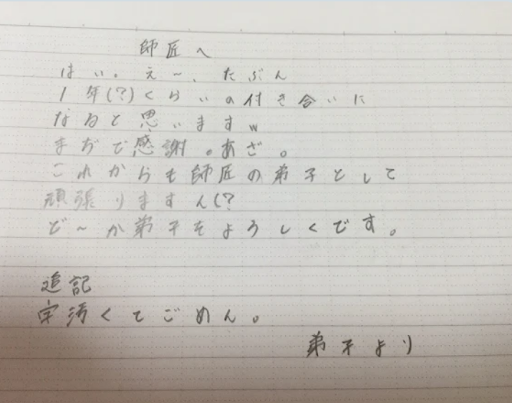 師匠へ
はい。え〜、たぶん
1年(?)くらいの付き合いに
なると思いますw
まぢで感謝。あざ。
これからも師匠の弟子として
頑張りますん(?
ど〜か弟子をよろしくです。
追記
字汚くてごめん。
弟子より